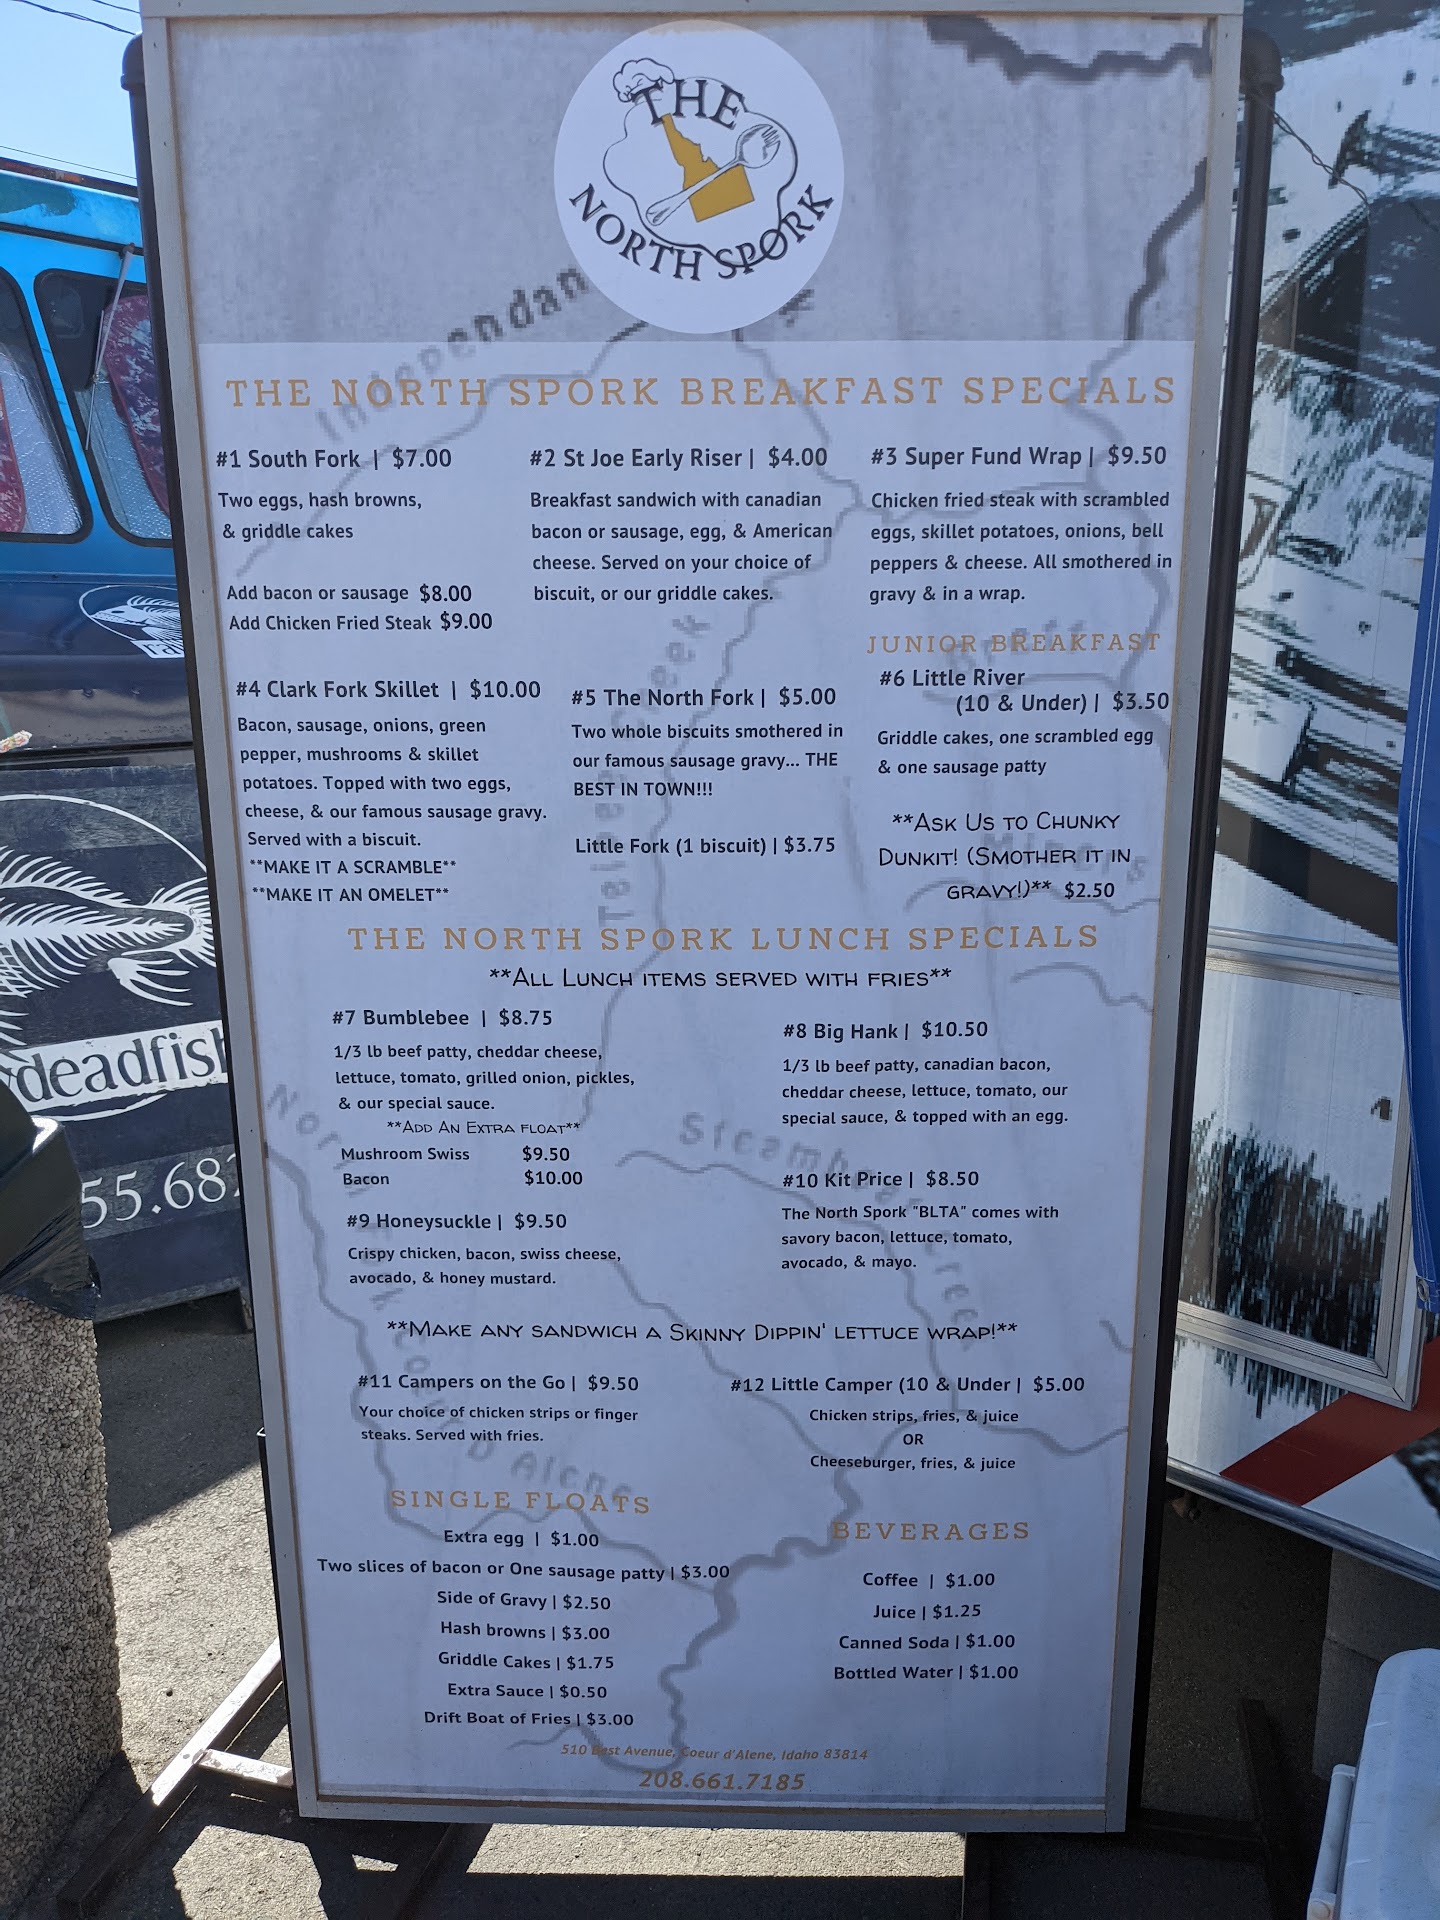 THE
NORTH SPORK
Independan
THE NORTH SPORK BREAKFAST SPECIALS
#1 South Fork | $7.00
Two eggs, hash browns,
& griddle cakes
Add bacon or sausage $8.00
Add Chicken Fried Steak $9.00
#2 St Joe Early Riser | $4.00
Breakfast sandwich with canadian
bacon or sausage, egg, & American
cheese. Served on your choice of
biscuit, or our griddle cakes.
#3 Super Fund Wrap | $9.50
Chicken fried steak with scrambled
eggs, skillet potatoes, onions, bell
peppers & cheese. All smothered in
gravy & in a wrap.
#4 Clark Fork Skillet | $10.00
Bacon, sausage, onions, green
pepper, mushrooms & skillet
potatoes. Topped with two eggs,
cheese, & our famous sausage gravy.
Served with a biscuit.
**MAKE IT A SCRAMBLE**
**MAKE IT AN OMELET**
#5 The North Fork | $5.00
Two whole biscuits smothered in
our famous sausage gravy... THE
BEST IN TOWN!!!
Little Fork (1 biscuit) | $3.75
JUNIOR BREAKFAST
#6 Little River
(10 & Under) | $3.50
Griddle cakes, one scrambled egg
& one sausage patty
**Ask Us to Chunky
Dunkit! (Smother it in
gravy!)** $2.50
Creek
THE NORTH SPORK LUNCH SPECIALS
**All Lunch items served with fries**
#7 Bumblebee | $8.75
1/3 lb beef patty, cheddar cheese,
lettuce, tomato, grilled onion, pickles,
& our special sauce.
**Add An Extra float**
Mushroom Swiss $9.50
Bacon $10.00
#8 Big Hank | $10.50
1/3 lb beef patty, canadian bacon,
cheddar cheese, lettuce, tomato, our
special sauce, & topped with an egg.
#9 Honeysuckle | $9.50
Crispy chicken, bacon, swiss cheese,
avocado, & honey mustard.
#10 Kit Price | $8.50
The North Spork "BLTA" comes with
savory bacon, lettuce, tomato,
avocado, & mayo.
Steamboat Creek
**Make any sandwich a Skinny Dippin' lettuce wrap!**
#11 Campers on the Go | $9.50
Your choice of chicken strips or finger
steaks. Served with fries.
#12 Little Camper (10 & Under | $5.00
Chicken strips, fries, & juice
OR
Cheeseburger, fries, & juice
North Fork Coeur D Alene
SINGLE FLOATS
Extra egg | $1.00
Two slices of bacon or One sausage patty | $3.00
Side of Gravy | $2.50
Hash browns | $3.00
Griddle Cakes | $1.75
Extra Sauce | $0.50
Drift Boat of Fries | $3.00
BEVERAGES
Coffee | $1.00
Juice | $1.25
Canned Soda | $1.00
Bottled Water | $1.00
510 Best Avenue, Coeur d'Alene, Idaho 83814
208.661.7185
deadfish
55.68